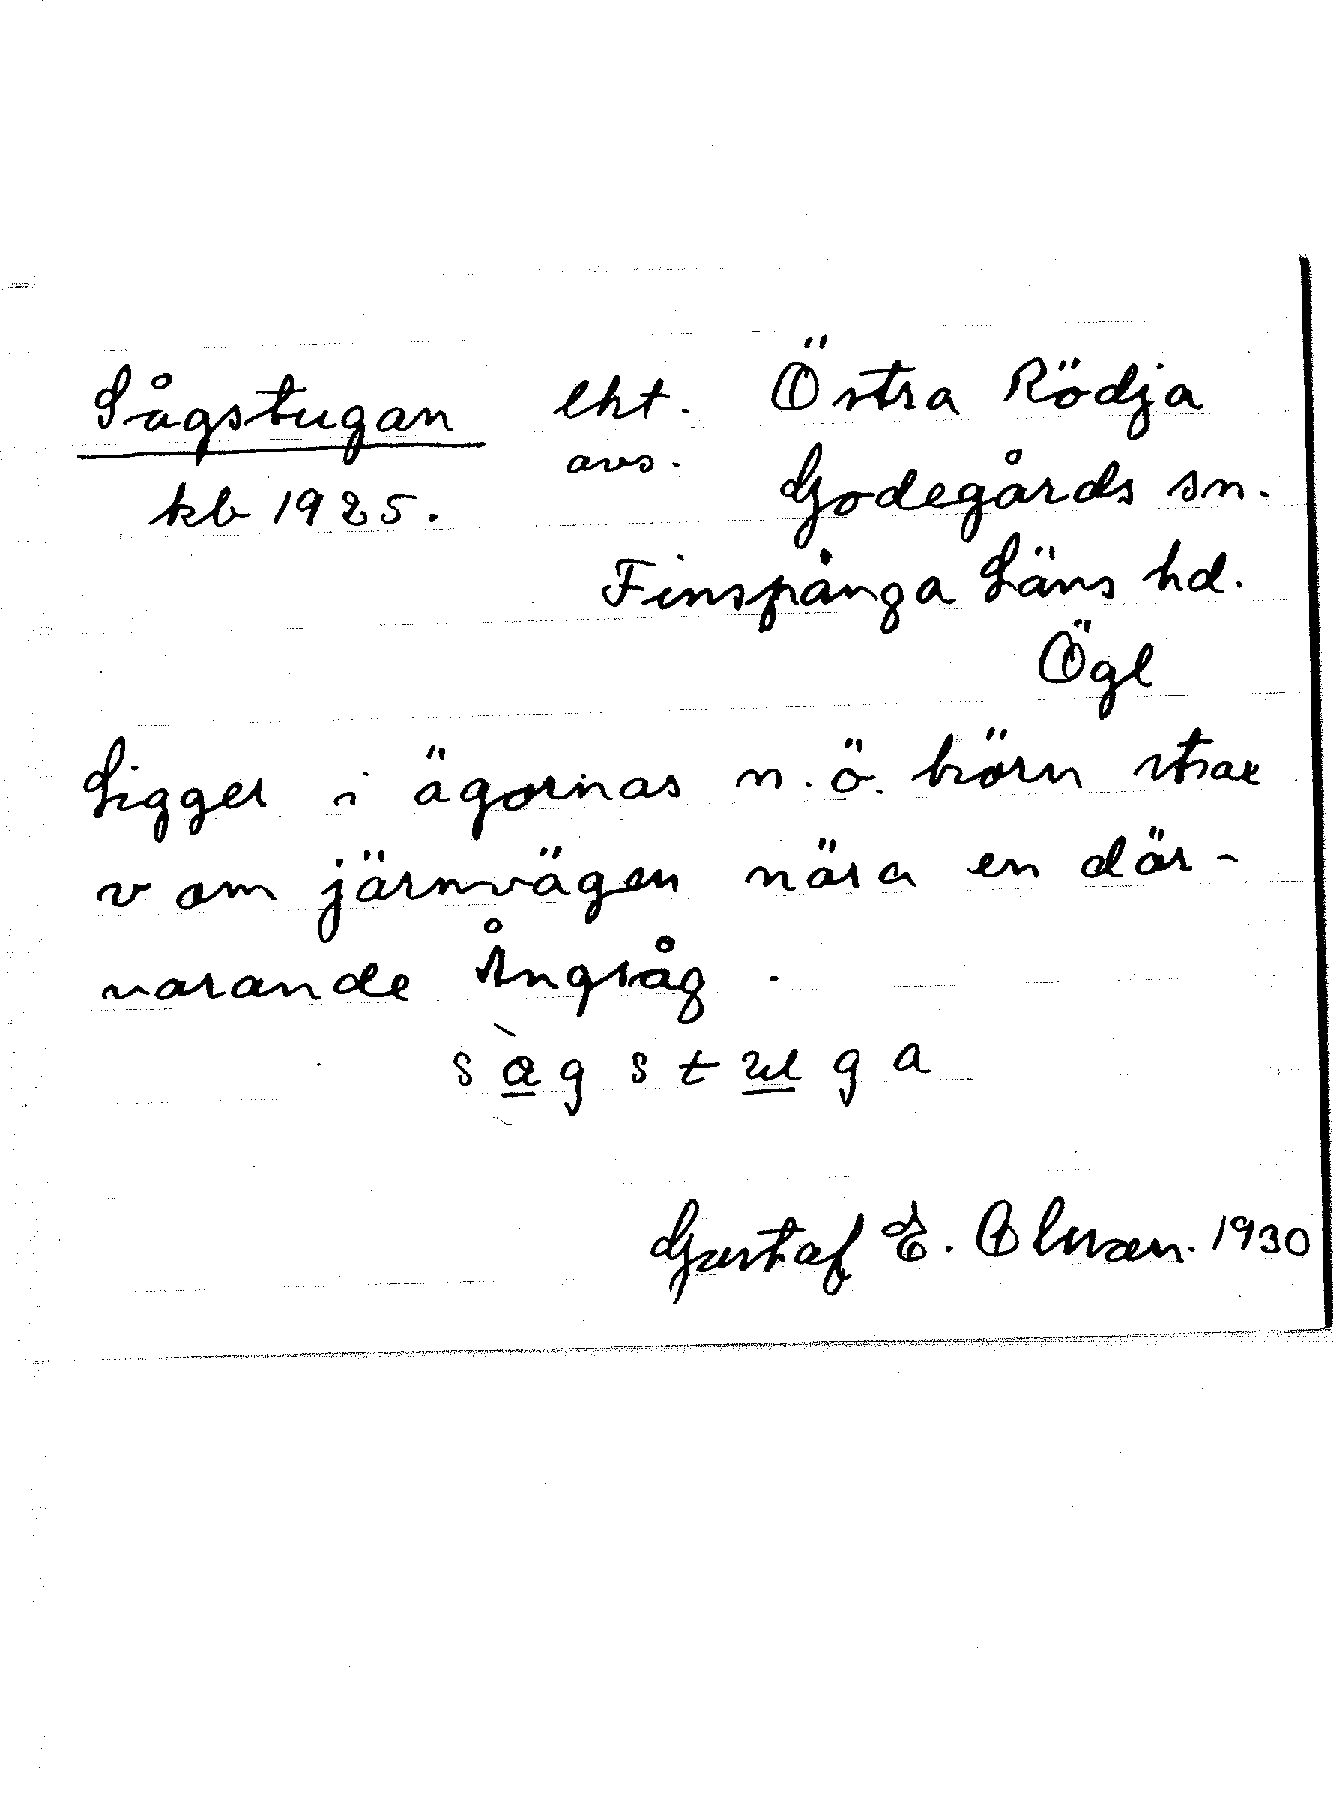 Sågstugan lht. Östra Rödja
avs.
kb 1925. Godegårds sn.
Finspånga Läns hd.
Ögl
Ligger i ägornas n.ö. hörn strax
v om järnvägen nära en där-
varande Ångsåg.
sàgstuga
Gustaf E. Olsson. 1930